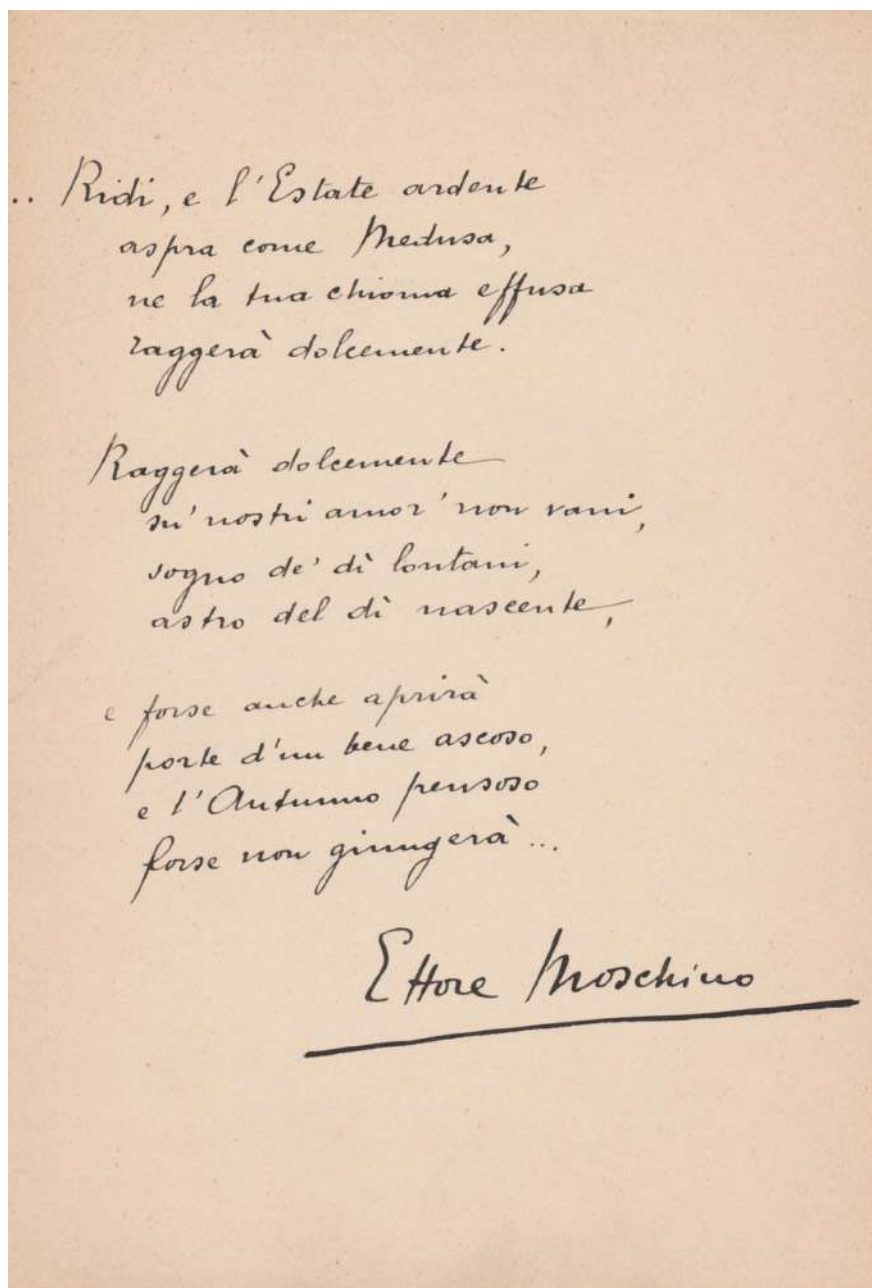 .. Ridi, e l'Estate ardente
aspra come Medusa,
ne la tua chioma effusa
raggerà dolcemente.
Raggerà dolcemente
su' nostri amor' non vani,
sogno de' dì lontani,
astro del dì nascente,
e forse anche aprirà
porte d'un bene ascoso,
e l'Autunno pensoso
forse non giungerà...
Ettore Moschino